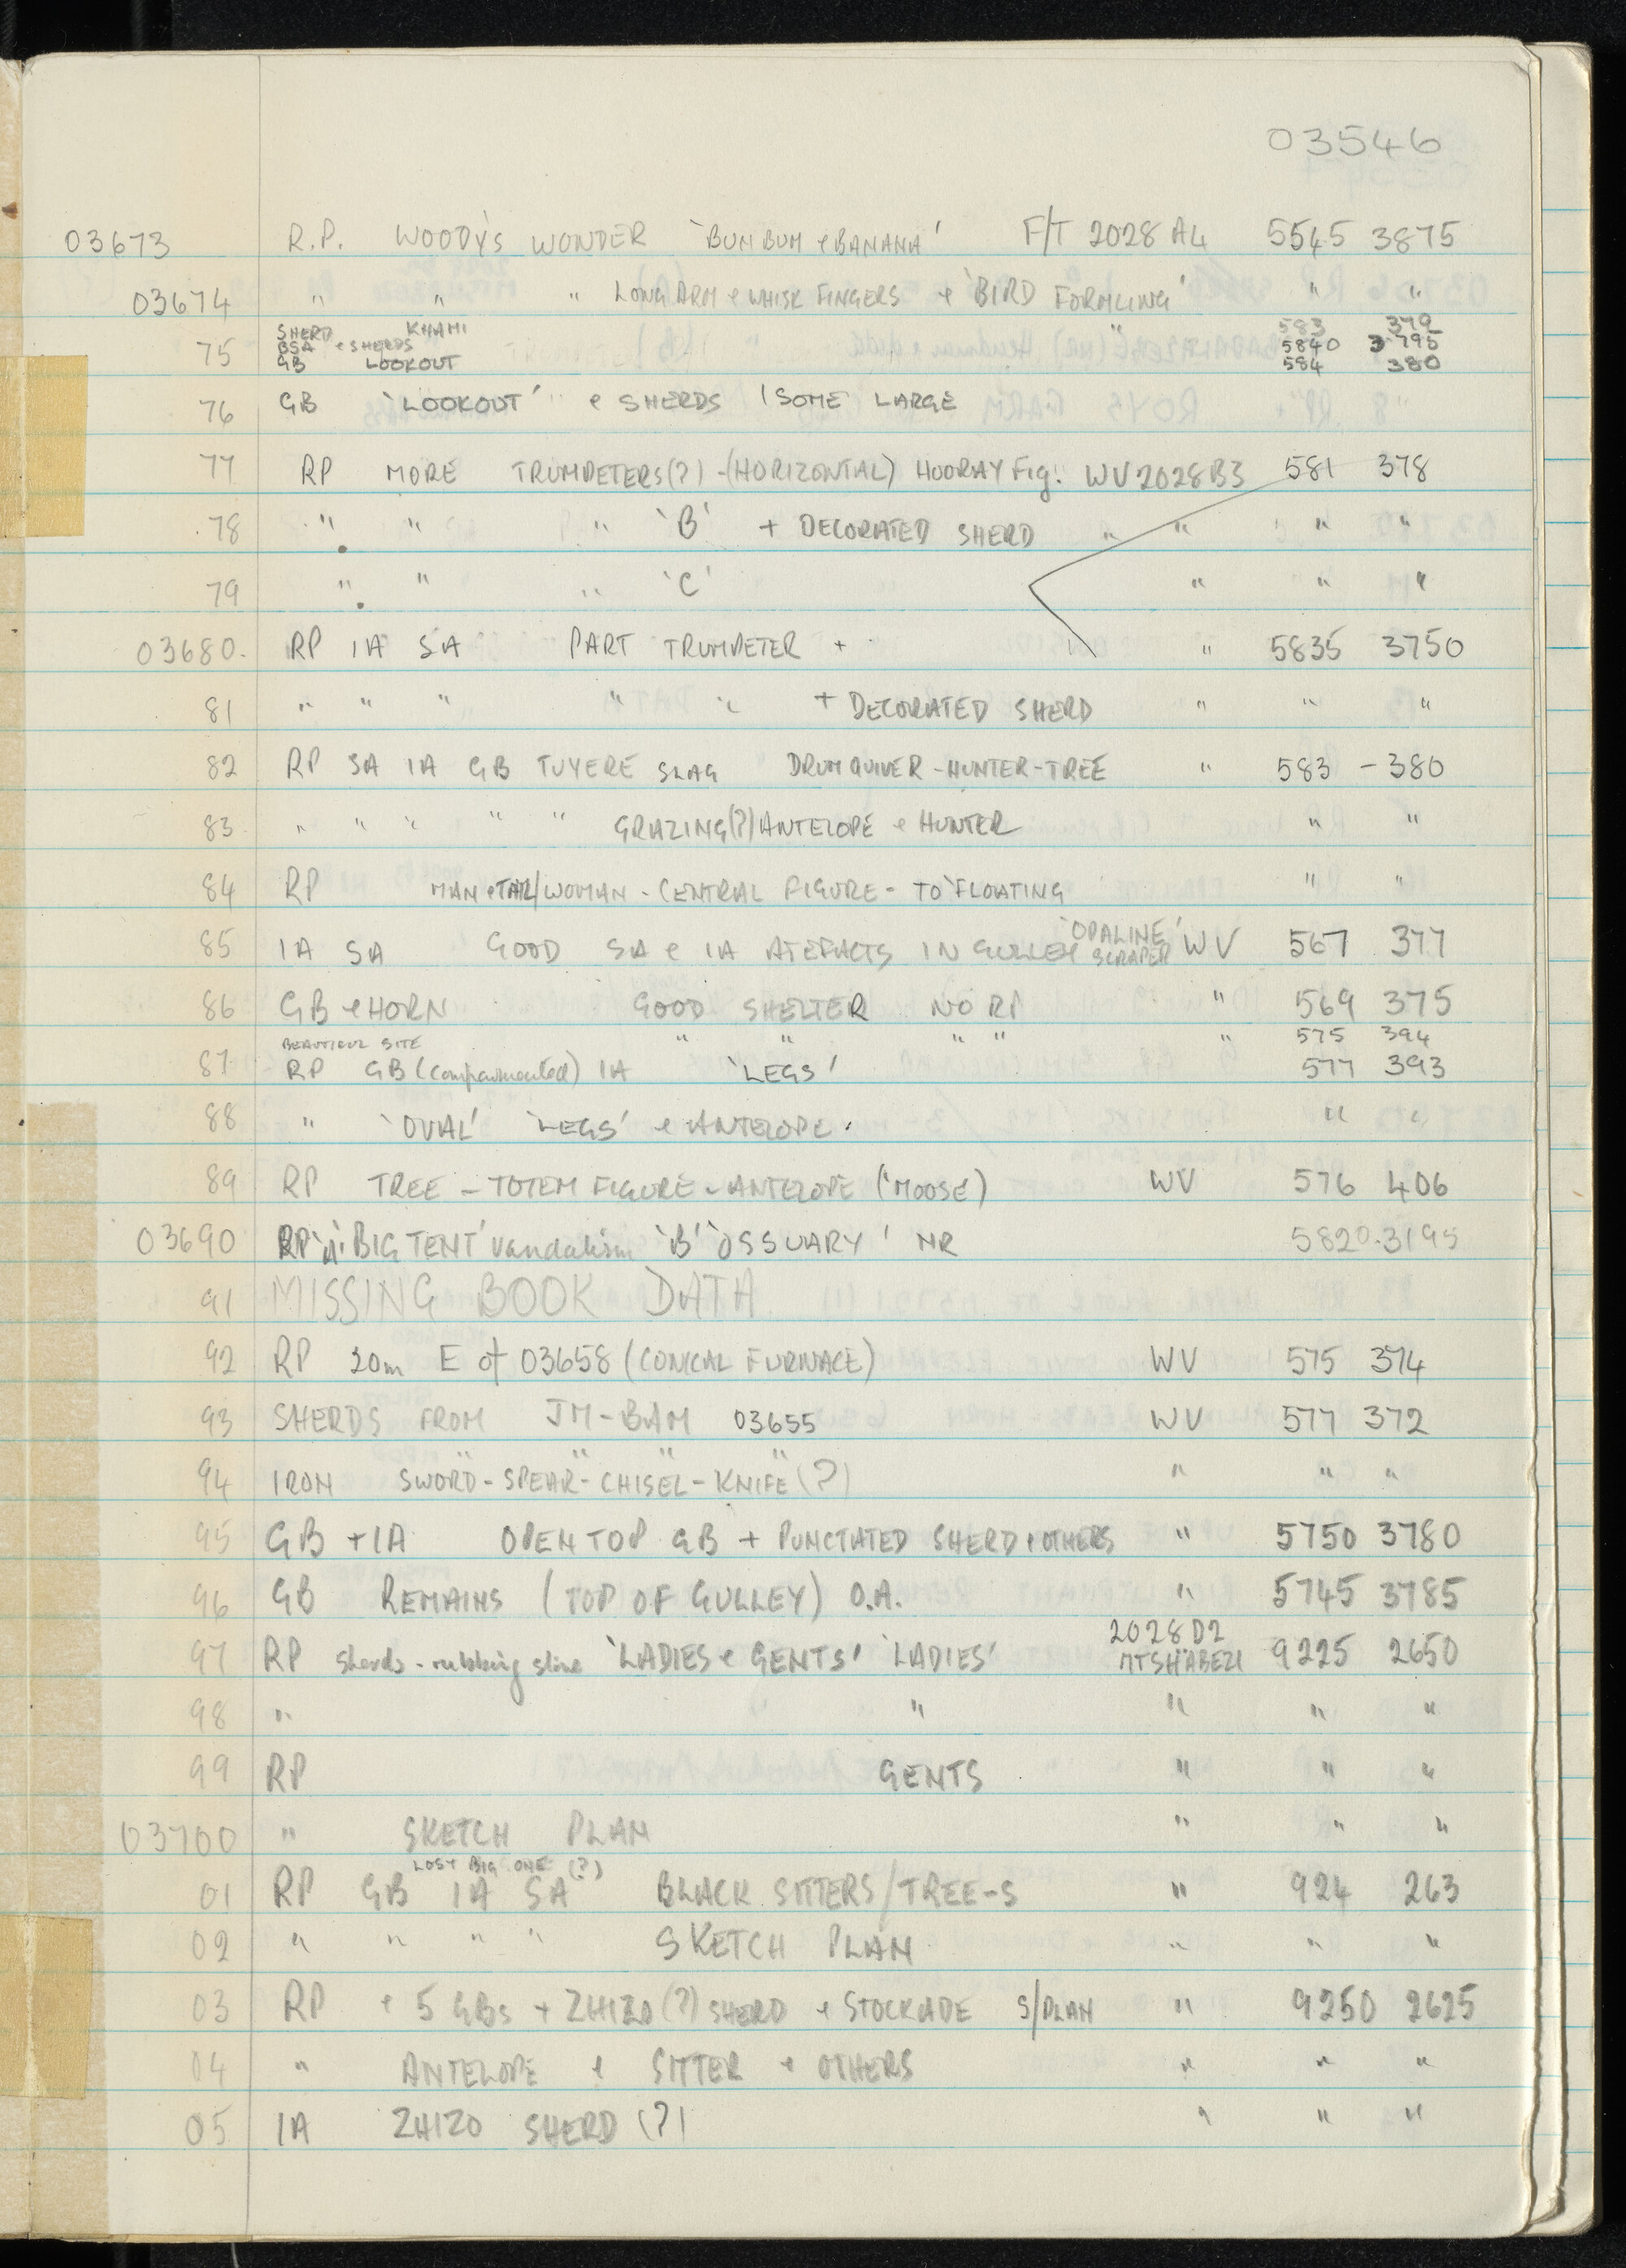 03546
03673 R.P. WOODYS WONDER 'BUMBUM & BANANA' F/T 2028 A4 5545 3875
03674 " " " LONG ARM & WHISK FINGERS & 'BIRD FORMLING' " "
SHERD KHAMI 583 379
75 BSA & SHERDS " 5840 3795
GB LOOKOUT 584 380
76 GB 'LOOKOUT' & SHERDS (SOME LARGE
77 RP MORE TRUMPETERS(?) - (HORIZONTAL) HOORAY Fig! WV2028B3 581 378
78 " " " 'B' + DECORATED SHERD " " " "
79 " " " 'C' " " "
03680. RP IA SA PART TRUMPETER + " 5835 3750
81 " " " " " + DECORATED SHERD " " "
82 RP SA IA GB TUYERE SLAG DRUM QUIVER - HUNTER - TREE " 583 - 380
83 " " " " " GRAZING(?) ANTELOPE & HUNTER " "
84 RP MAN & TAIL/WOMAN - CENTRAL FIGURE - TO 'FLOATING " "
85 IA SA GOOD SA & IA ATEFACTS IN GULLEY 'OPALINE' SCRAPER WV 567 377
86 GB & HORN GOOD SHELTER NO RP " 569 375
BEAUTIFUL SITE " " " " " 575 394
87 RP GB (compartmented) IA 'LEGS' 577 393
88 " 'OVAL' 'LEGS' & ANTELOPE. " "
89 RP TREE - TOTEM FIGURE - ANTELOPE ('MOOSE) WV 576 406
03690 RP 'A' 'BIG TENT' vandalism 'B' 'OSSUARY' NR 5820.3195
91 MISSING BOOK DATA
92 RP 20m E of 03658 (CONICAL FURNACE) WV 575 374
93 SHERDS FROM JM-BAM 03655 WV 577 372
" " " "
94 IRON SWORD - SPEAR - CHISEL - KNIFE (?) " " "
95 GB + IA OPEN TOP GB + PUNCTATED SHERD & OTHERS " 5750 3780
96 GB REMAINS (TOP OF GULLEY) O.A. " 5745 3785
97 RP Sherds - rubbing stone 'LADIES & GENTS' 'LADIES' 2028 D2 MTSHABEZI 9225 2650
98 " " " " "
99 RP GENTS " " "
03700 " SKETCH PLAN " " "
LOST BIG ONE (?)
01 RP GB IA SA BLACK SITTERS/TREE-S " 924 263
02 " " " " SKETCH PLAN " " "
03 RP & 5 GBs + ZHIZO (?) SHERD & STOCKADE S/PLAN " 9250 2625
04 " ANTELOPE & SITTER & OTHERS " " "
05 IA ZHIZO SHERD (?) " " "